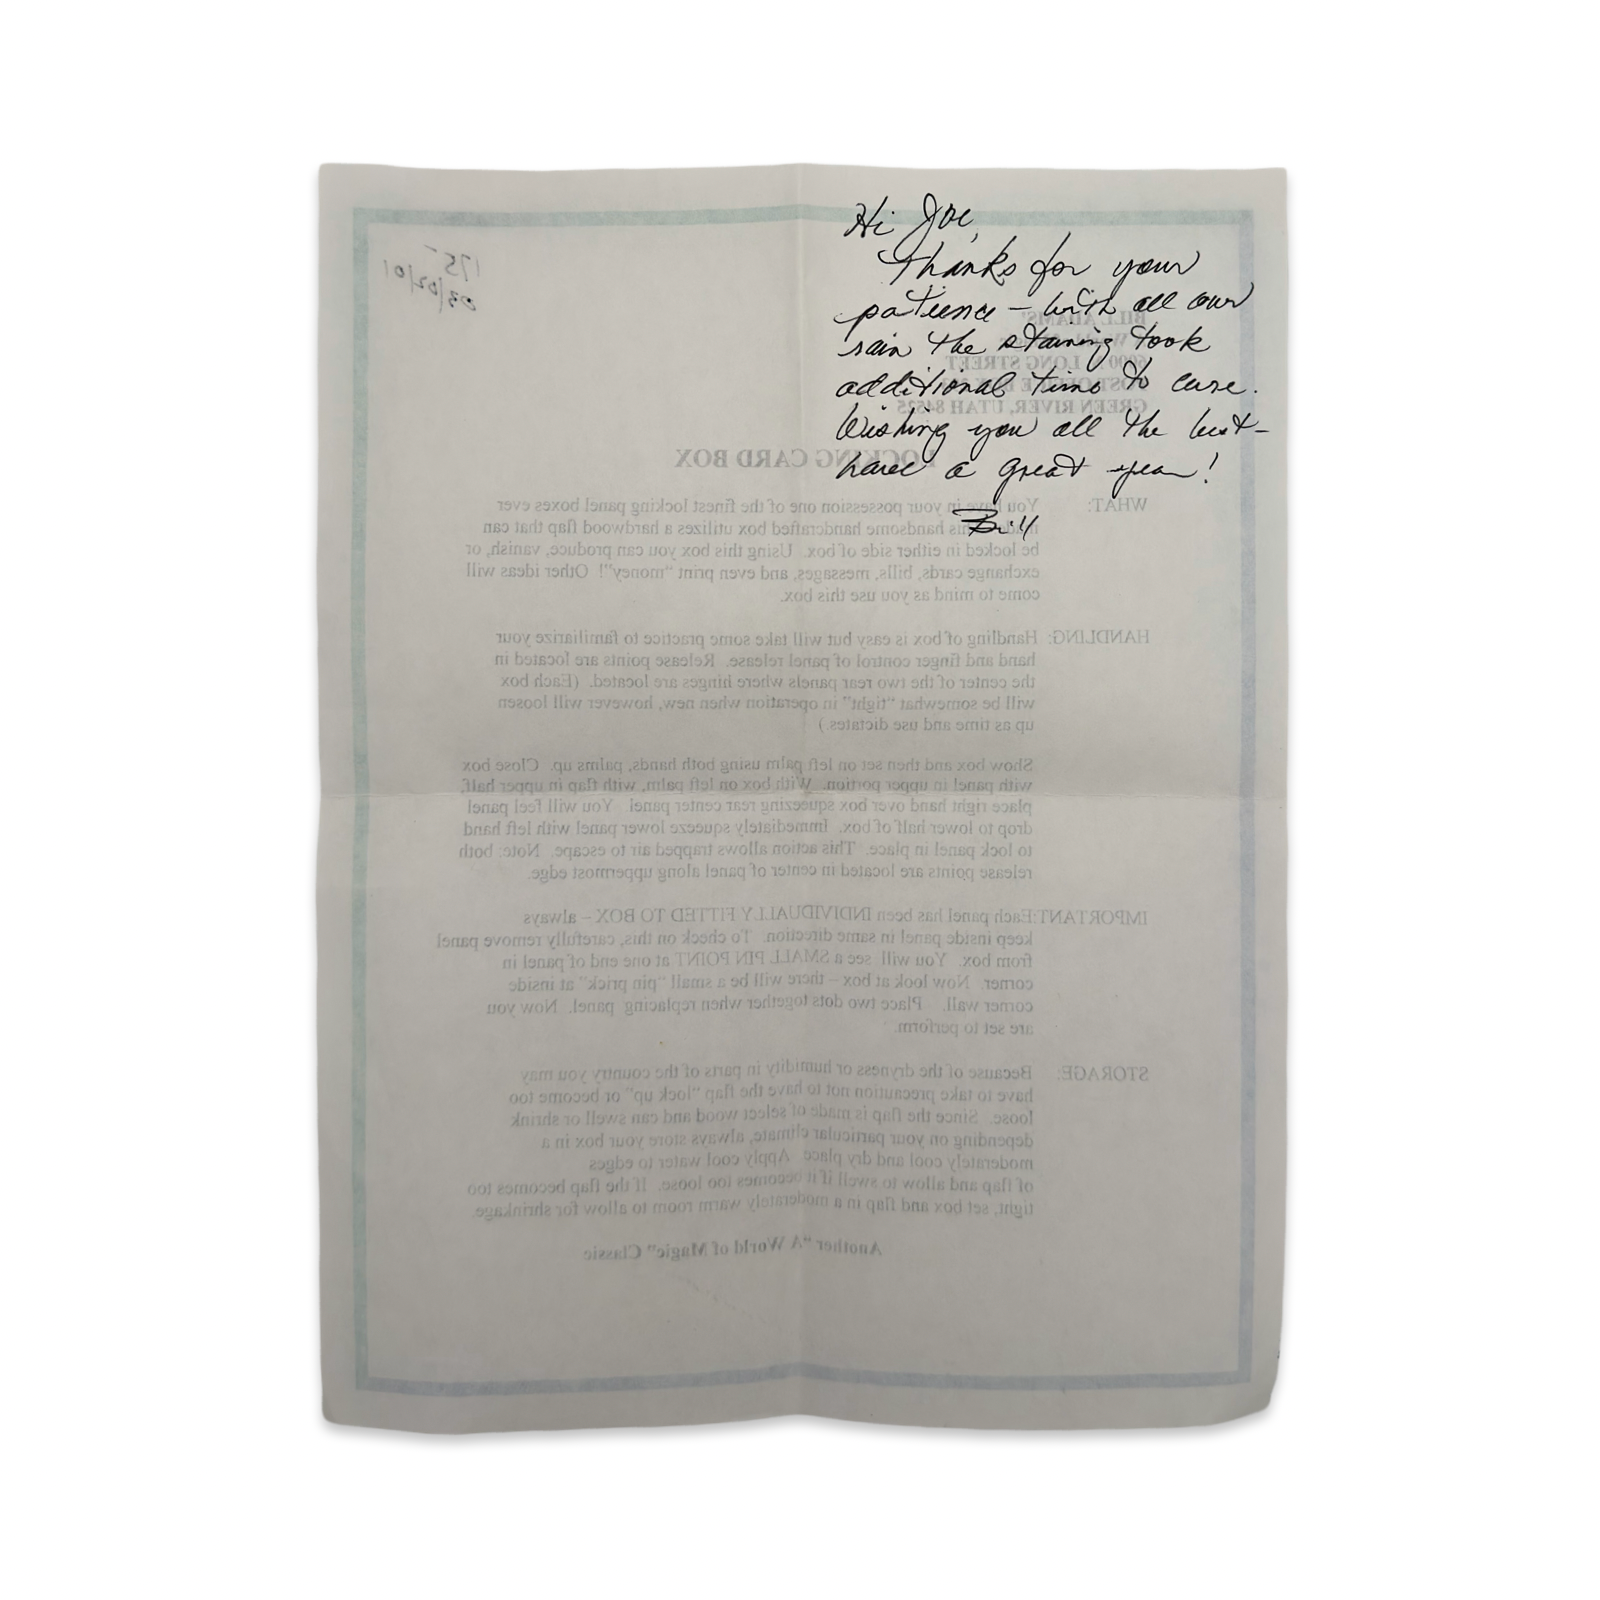 Hi Joe,
Thanks for your
patience – with all our
rain the staining took
additional time to cure.
Wishing you all the best–
have a great year!
Bill
175-
03/02/01
BILL ADAMS'
LONG STREET
GREEN RIVER, UTAH 84525
LOCKING CARD BOX
WHAT: You have in your possession one of the finest locking panel boxes ever
this handsome handcrafted box utilizes a hardwood flap that can
be locked in either side of box. Using this box you can produce, vanish, or
exchange cards, bills, messages, and even print "money"! Other ideas will
come to mind as you use this box.
HANDLING: Handling of box is easy but will take some practice to familiarize your
hand and finger control of panel release. Release points are located in
the center of the two rear panels where hinges are located. (Each box
will be somewhat "tight" in operation when new, however will loosen
up as time and use dictates.)
Show box and then set on left palm using both hands, palms up. Close box
with panel in upper portion. With box on left palm, with flap in upper half,
place right hand over box squeezing rear center panel. You will feel panel
drop to lower half of box. Immediately squeeze lower panel with left hand
to lock panel in place. This action allows trapped air to escape. Note: both
release points are located in center of panel along uppermost edge.
IMPORTANT: Each panel has been INDIVIDUALLY FITTED TO BOX – always
keep inside panel in same direction. To check on this, carefully remove panel
from box. You will see a SMALL PIN POINT at one end of panel in
corner. Now look at box – there will be a small "pin prick" at inside
corner wall. Place two dots together when replacing panel. Now you
are set to perform.
STORAGE: Because of the dryness or humidity in parts of the country you may
have to take precaution not to have the flap "lock up" or become too
loose. Since the flap is made of select wood and can swell or shrink
depending on your particular climate, always store your box in a
moderately cool and dry place. Apply cool water to edges
of flap and allow to swell if it becomes too loose. If the flap becomes too
tight, set box and flap in a moderately warm room to allow for shrinkage.
Another "A World of Magic" Classic